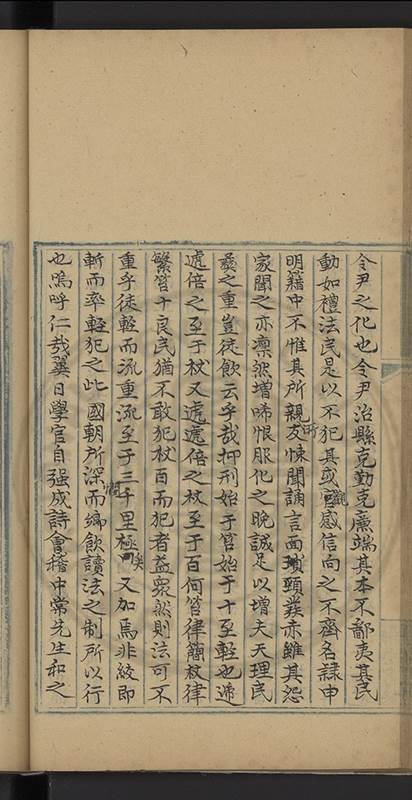 令尹之化也令尹治縣克勤克廉端其本不鄙夷其民
動如禮法民是以不犯其或觀感信向之不齊名隸申
明籍中不惟其所親友悚聞誦言面頸發赤雖其怨
家聞之亦凛然增啼恨服化之晚誠足以增夫天理民
彝之重豈徒飲云乎哉抑刑始于笞始于十至輕也遞
遞倍之至于杖又遞遞倍之杖至于百何笞律簡杖律
繁笞十良民猶不敢犯杖百而犯者益衆然則法可不
重乎徒輕而流重流至于三千里極矣又加焉非絞即
斬而率輕犯之此國朝所深而編飲讀法之制所以行
也嗚呼仁哉翼日學官自强成詩會稽中常先生和之